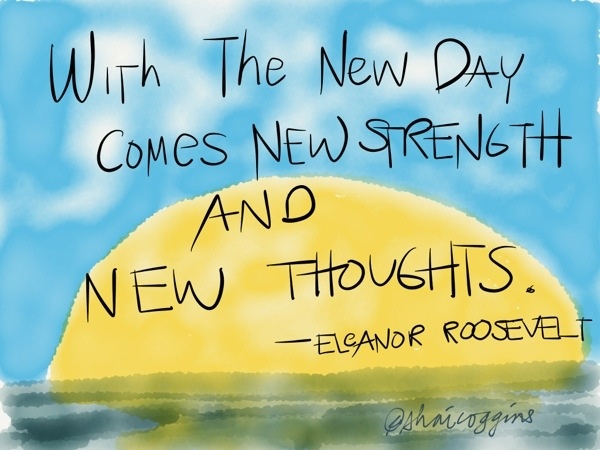 With The New Day
Comes New Strength
And
New Thoughts.
— Eleanor Roosevelt
@shaicoggins